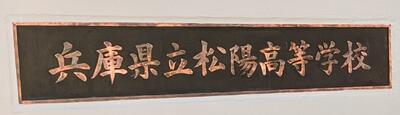 兵庫県立松陽高等学校